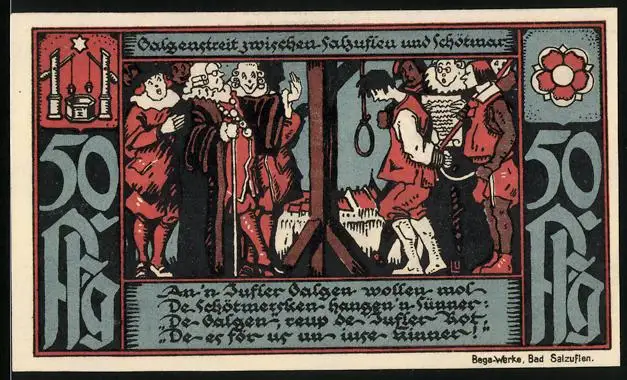 Galgenstreit zwischen Salzuflen und Schötmar
50 Pfg
50 Pfg
An'n Zufler Galgen wollen mol
De Schötmersken hangen'n Sünner:
"De Galgen", reup de Zufler Rot,
"De es för us un iuse Kinner!"
LÜ
Bega-Werke, Bad Salzuflen.